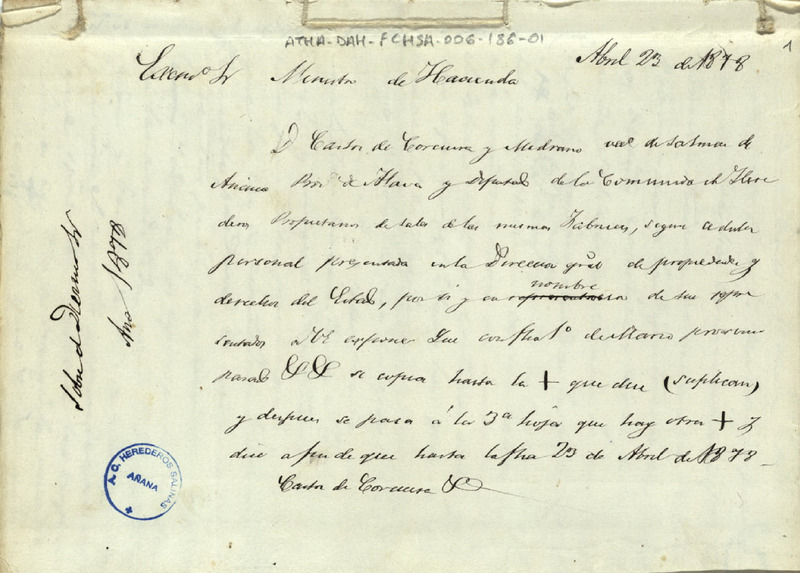 ATHA-DAH-FCHSA-006-186-01
1
Abril 23 de 1878
Excmo Sr Ministro de Hacienda
D Castor de Corcuera y Medrano vecl de Salinas de
Añana Prov.ª de Alava y Diputado de la Comunidad de Here
deros Propietarios de sales de las mismas Fabricas, segun cedula
personal presentada en la Direccion gral de propiedades y
derechos del Estado, por si y en representacion nombre de sus repre
sentados a VE expone Que con fha 1º de Marzo proximo
pasado &&  se copia hasta la + que dice (suplican)
y despues se pasa á la 3ª hoja que hay otra + y
dice a fin de que hasta la fha 23 de Abril de 1878-
Castor de Corcuera
Año 1878
A. C. HEREDEROS SALINAS
AÑANA